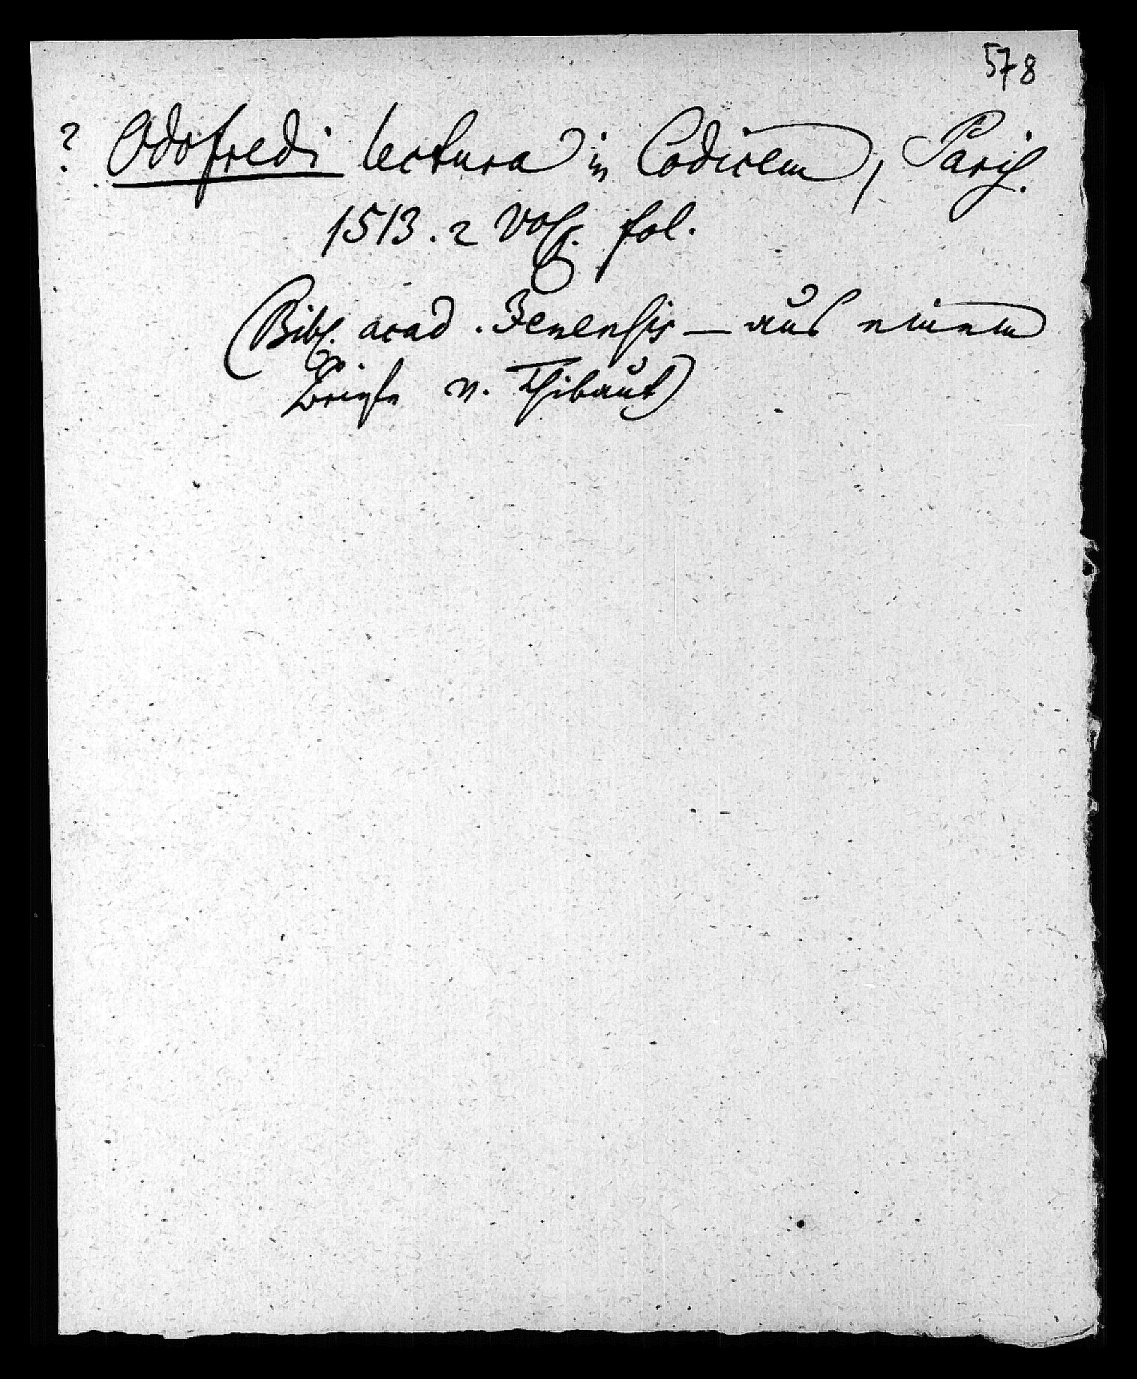 578
? Odofredi lectura in Codicem, Paris.
1513. 2 Vol. fol.
(Bibl. acad. Jenensis — aus einem
Briefe v. Thibaut)